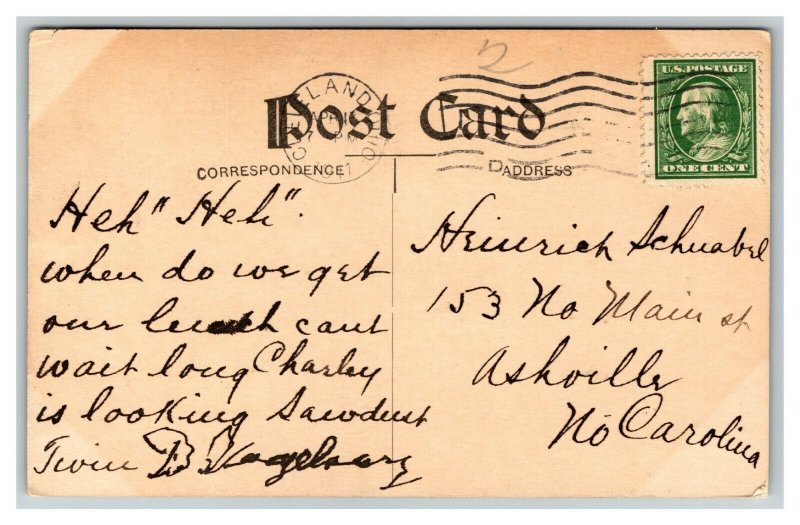 2
U.S. POSTAGE
ONE CENT
CLEVELAND OHIO
APR 1
Post Card
CORRESPONDENCE
ADDRESS
Heh" Heh".
when do we get
our lunch cant
wait long Charley
is looking Sawdust
Twin B
Heinrich Schnabel
153 No Main st
Ashville
No Carolina